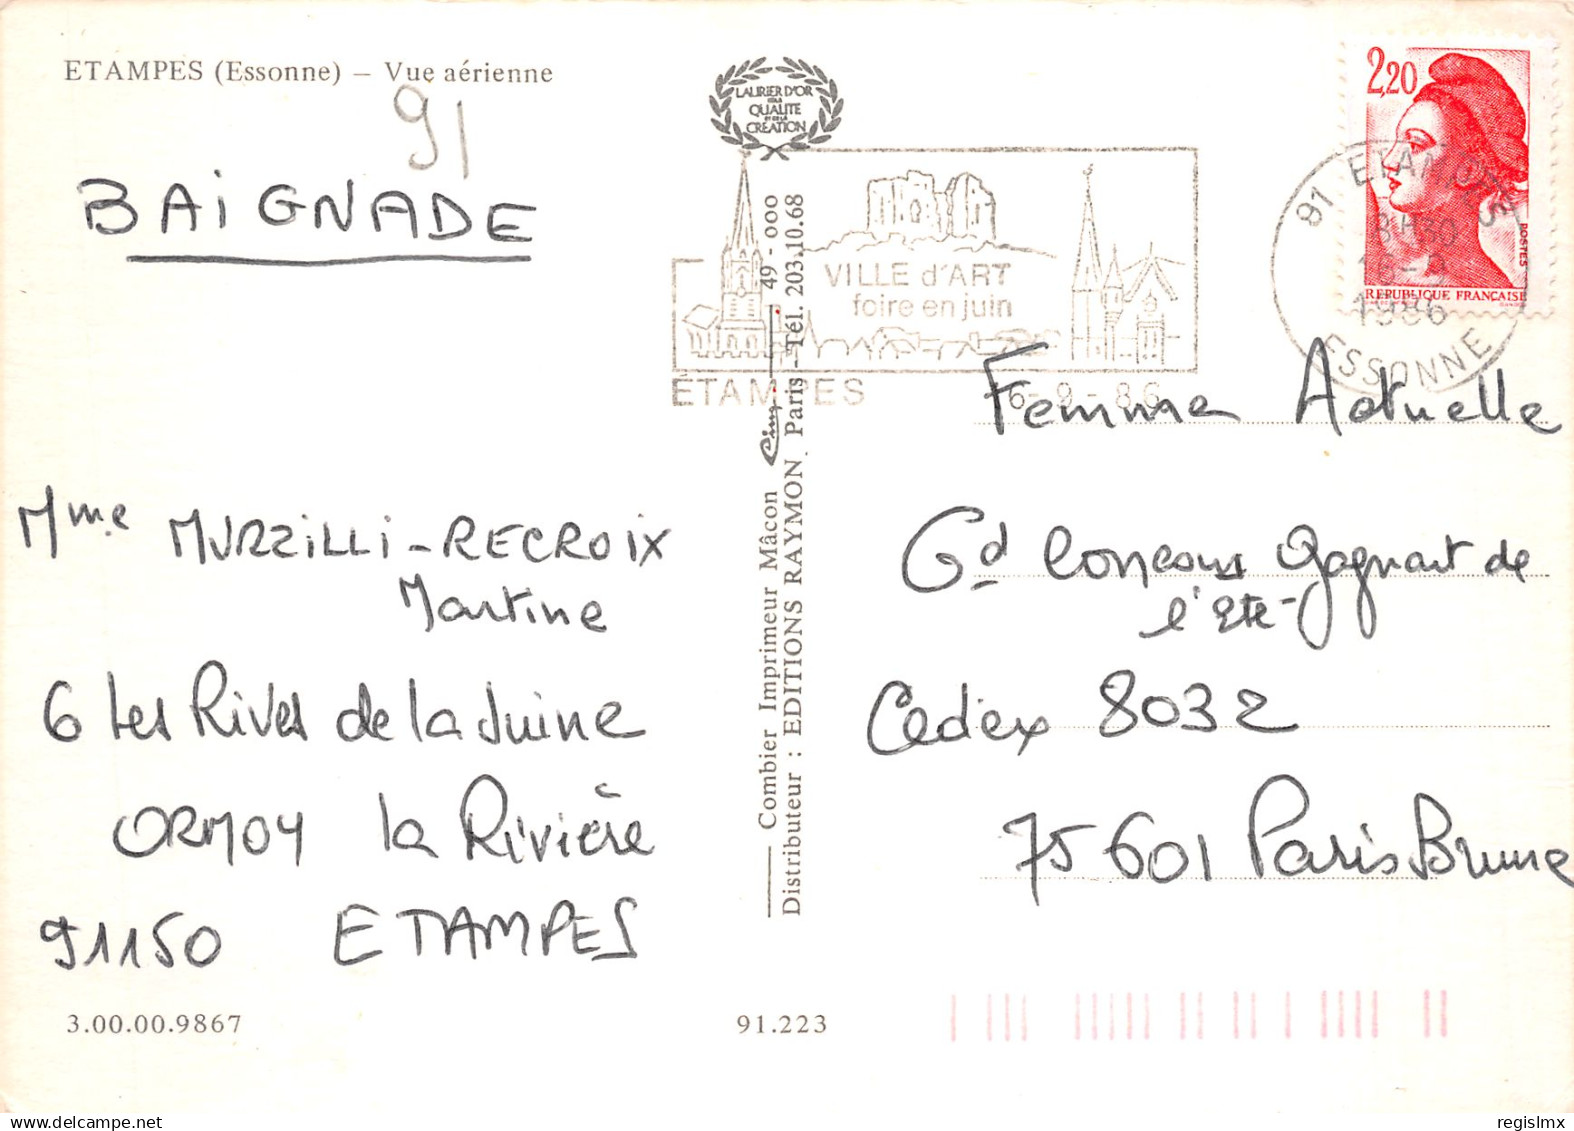 ETAMPES (Essonne) – Vue aérienne
91
BAIGNADE
Mme MURZILLI-RECROIX
Martine
6 les Rives de la Juine
ORMOY la Rivière
91150 ETAMPES
3.00.00.9867
LAURIER D'OR
QUALITE
ET DE LA
CREATION
VILLE d'ART
foire en juin
ÉTAMPES
16-9-86
Combier Imprimeur Mâcon Cim 49-000
Distributeur : EDITIONS RAYMON, Paris – Tél. 203.10.68
91.223
2,20
POSTES
REPUBLIQUE FRANÇAISE
91 ETAMPES
1986
ESSONNE
Femme Actuelle
Gd Concours Gagnant de
l'Eté
Cedex 8032
75601 Paris Brune
regislmx